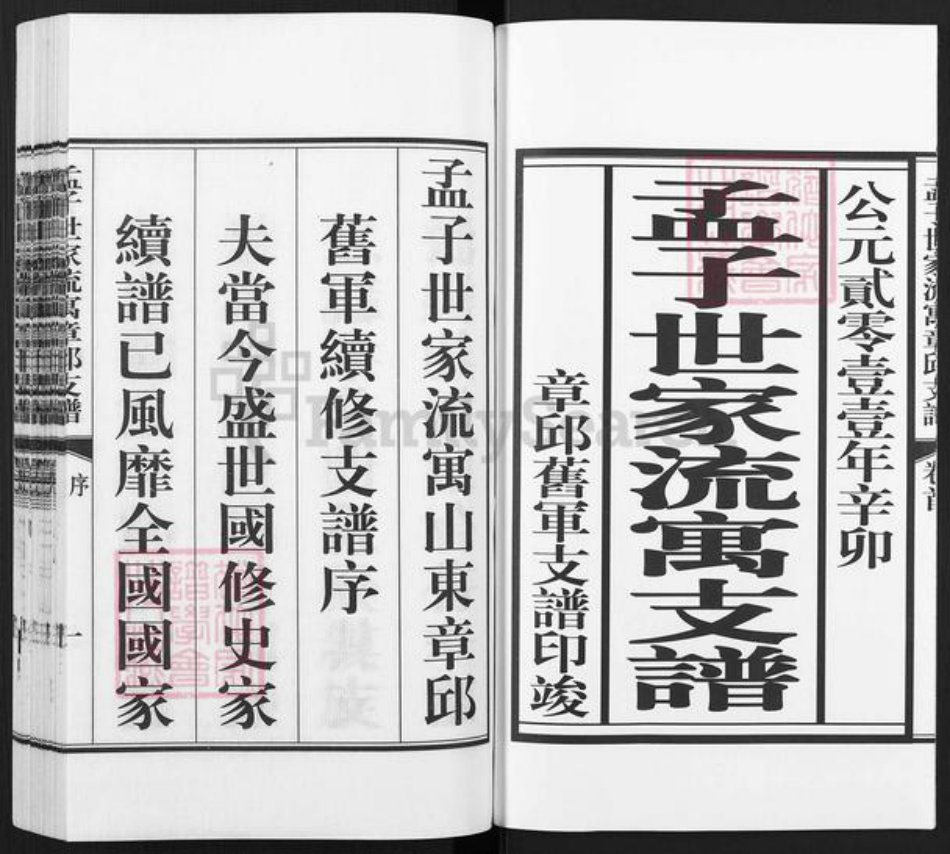 公元貳零壹壹年辛卯
孟子世家流寓支譜
章邱舊軍支譜印竣
孟子世家流寓山東章邱
舊軍續修支譜序
夫當今盛世國修史家
續譜已風靡全國國家
孟子世家流寓章邱支譜
序
一
FamilySearch